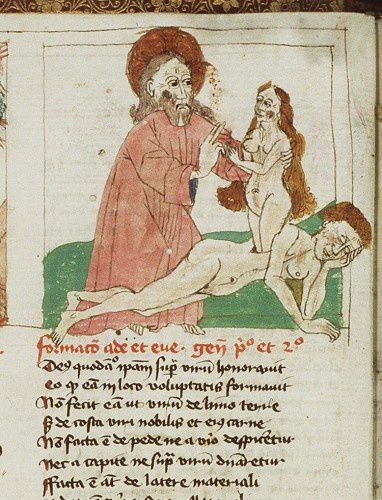 Formatō ade et eve · geñ pᵒ et 2ᵒ
Deꝰ quodā ip̄am sup̄ virū honoravit
Eo qꝫ eā in loco voluptatis formavit
Nō fecit eā ut virū de limo terre
Sꝫ de costa viri nobilis et eiꝰ carne
Nō facta ē de pede ne a viro despicetur
Nec a capite ne sup̄ virū dn̄aretur
Facta ē aūt de latere materiali